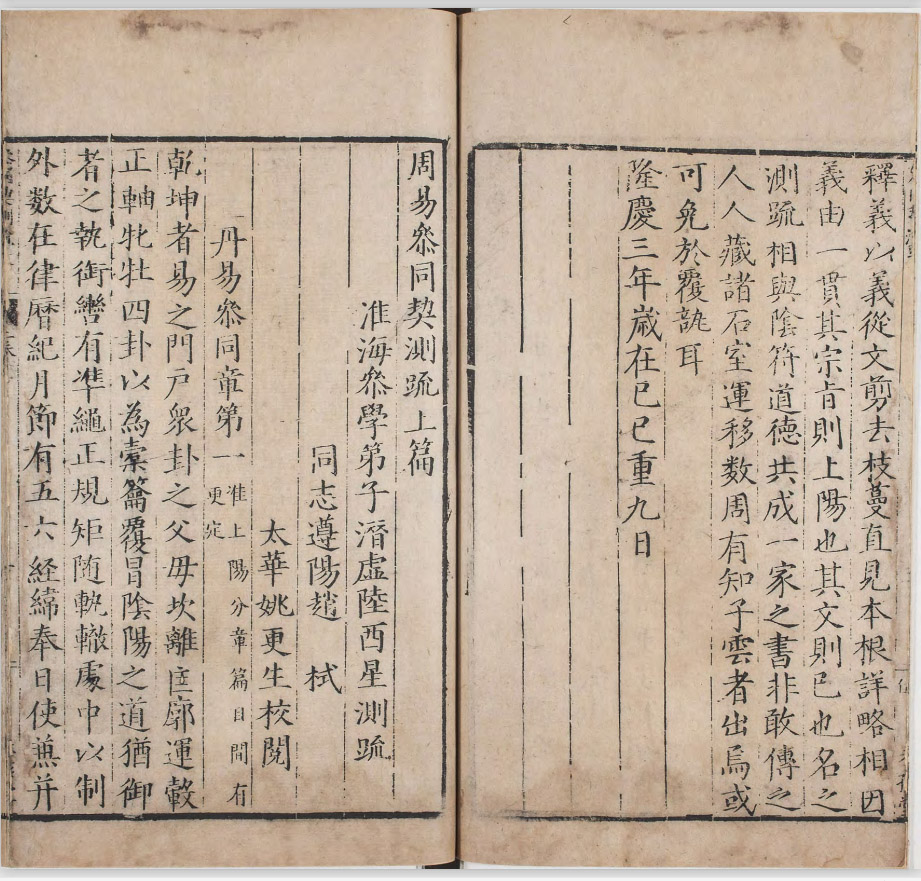 釋義以義從文剪去枝蔓直見本根詳略相因
義由一貫其宗旨則上陽也其文則已也名之
測疏相與陰符道德共成一家之書非敢傳之
人人藏諸石室運移数周有知子雲者出焉或
可免於覆瓿耳
隆慶三年歲在己巳重九日
周易叅同契測疏上篇
淮海叅學弟子潛虛陸西星測疏
同志遵陽趙 栻
太華姚更生校閱
丹易叅同章第一 准上陽分章篇目間有
更定
乾坤者易之門戶衆卦之父母坎離匡廓運轂
正軸牝牡四卦以為槖籥覆冒陰陽之道猶御
者之執銜轡有準繩正規矩随軌轍處中以制
外数在律曆紀月節有五六経緯奉日使兼并